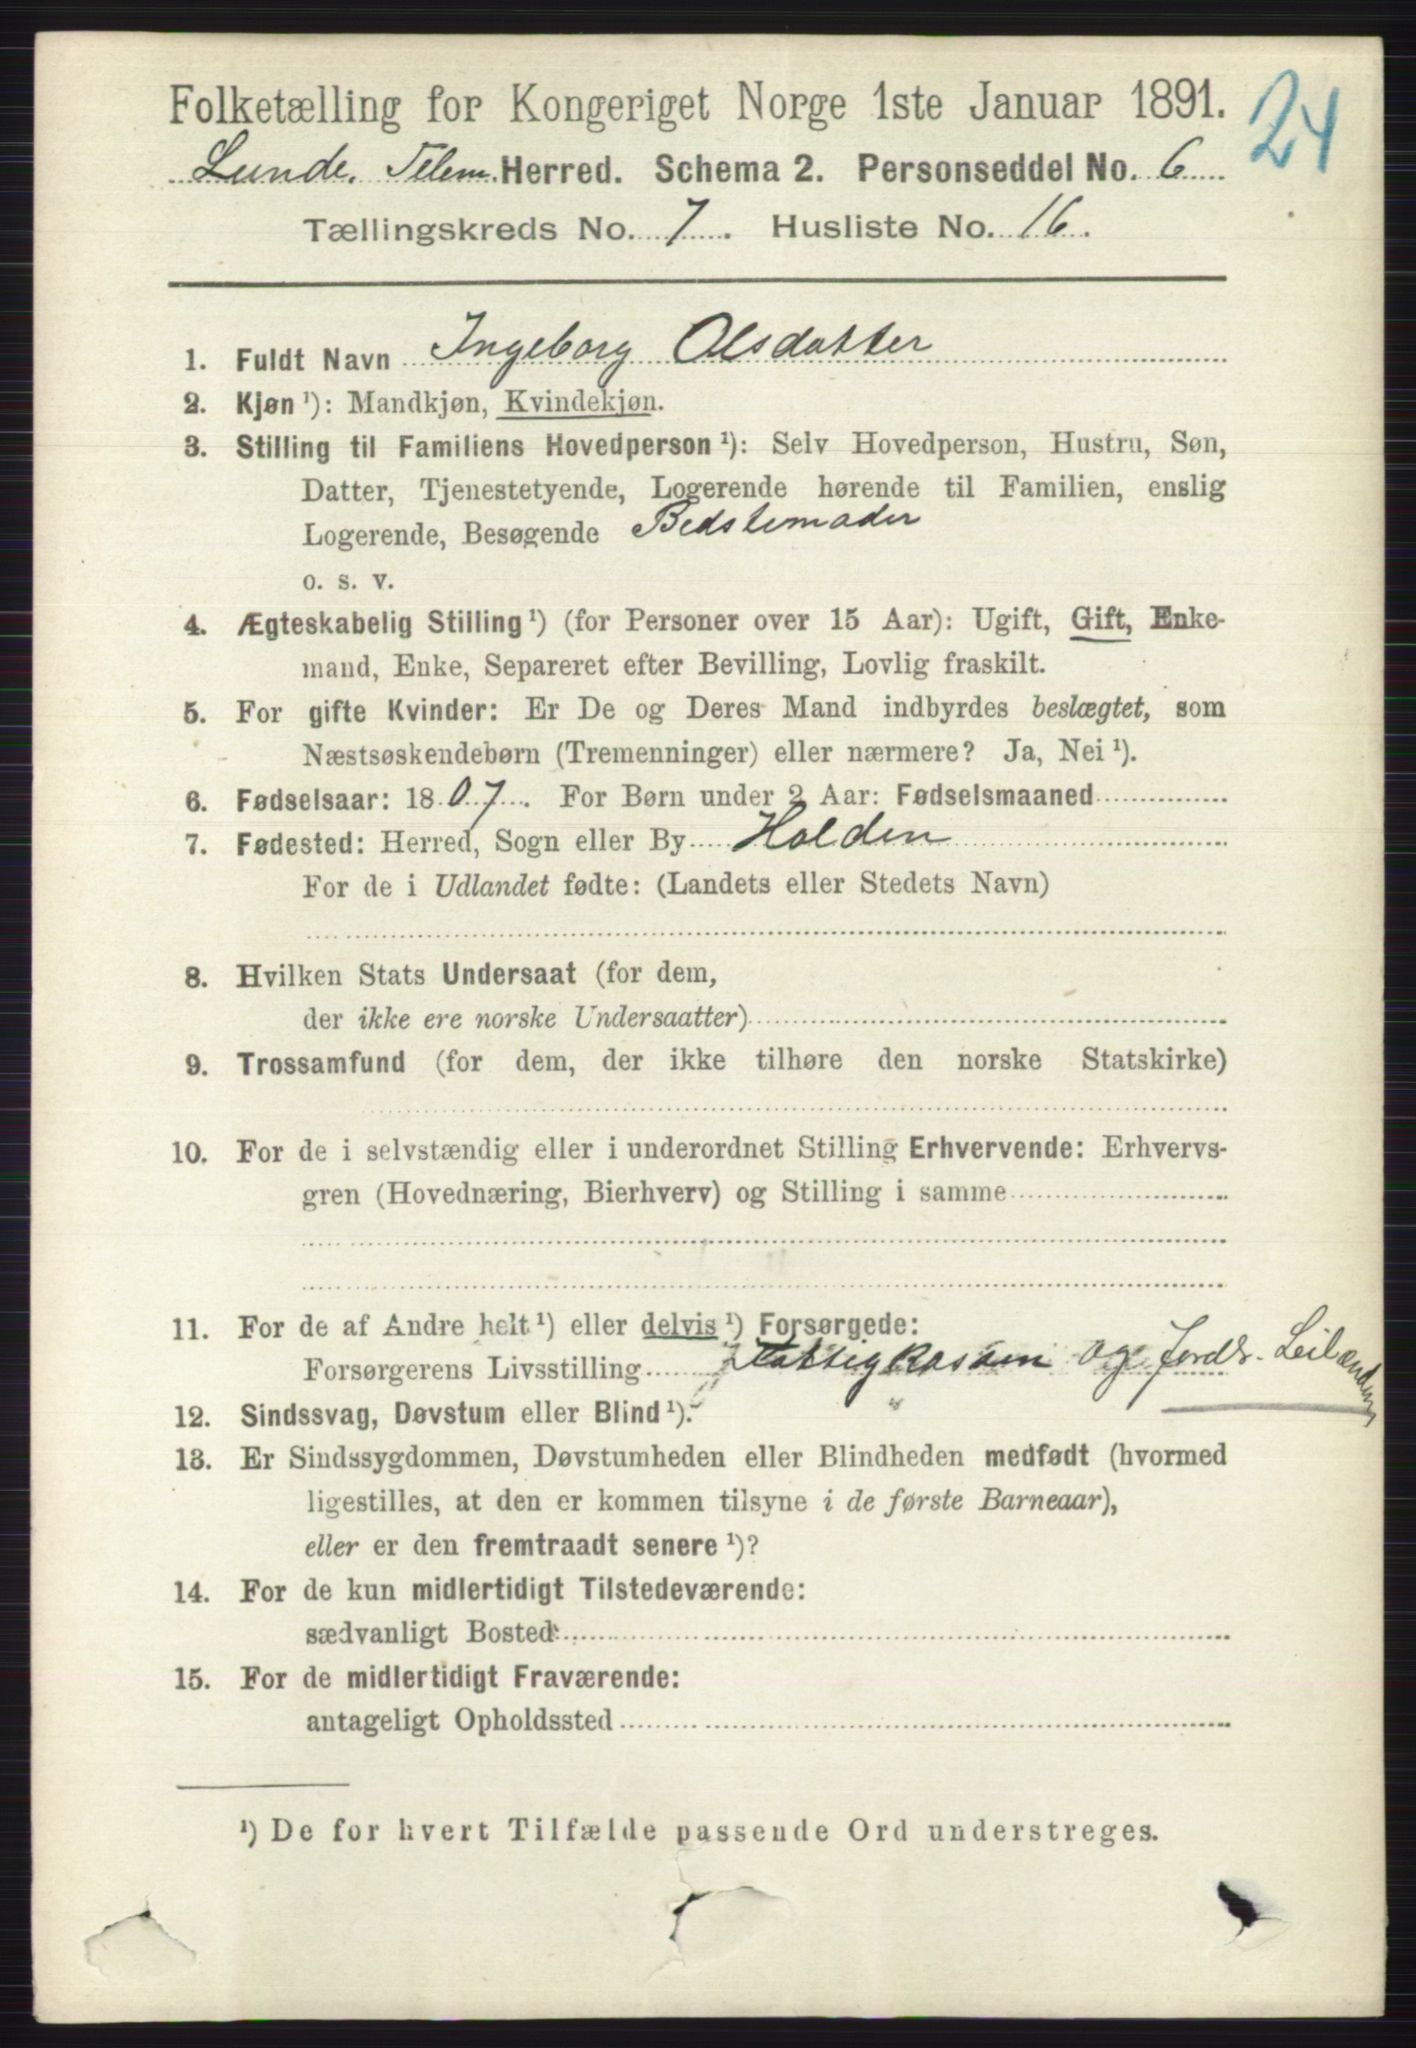 Folketælling for Kongeriget Norge 1ste Januar 1891.
24
Lunde. Telem. Herred. Schema 2. Personseddel No. 6
Tællingskreds No. 7. Husliste No. 16.
1. Fuldt Navn Ingeborg Olsdatter
2. Kjøn ¹): Mandkjøn, Kvindekjøn.
3. Stilling til Familiens Hovedperson ¹): Selv Hovedperson, Hustru, Søn,
Datter, Tjenestetyende, Logerende hørende til Familien, enslig
Logerende, Besøgende Bedstemoder
o. s. v.
4. Ægteskabelig Stilling ¹) (for Personer over 15 Aar): Ugift, Gift, Enke-
mand, Enke, Separeret efter Bevilling, Lovlig fraskilt.
5. For gifte Kvinder: Er De og Deres Mand indbyrdes beslægtet, som
Næstsøskendebørn (Tremenninger) eller nærmere? Ja, Nei ¹).
6. Fødselsaar: 1807. For Børn under 2 Aar: Fødselsmaaned
7. Fødested: Herred, Sogn eller By Holden
For de i Udlandet fødte: (Landets eller Stedets Navn)
8. Hvilken Stats Undersaat (for dem,
der ikke ere norske Undersaatter)
9. Trossamfund (for dem, der ikke tilhøre den norske Statskirke)
10. For de i selvstændig eller i underordnet Stilling Erhvervende: Erhvervs-
gren (Hovednæring, Bierhverv) og Stilling i samme
11. For de af Andre helt ¹) eller delvis ¹) Forsørgede:
Forsørgerens Livsstilling Fattigkassen og Jordbr. Leilænding
12. Sindssvag, Døvstum eller Blind ¹).
13. Er Sindssygdommen, Døvstumheden eller Blindheden medfødt (hvormed
ligestilles, at den er kommen tilsyne i de første Barneaar),
eller er den fremtraadt senere ¹)?
14. For de kun midlertidigt Tilstedeværende:
sædvanligt Bosted:
15. For de midlertidigt Fraværende:
antageligt Opholdssted
¹) De for hvert Tilfælde passende Ord understreges.